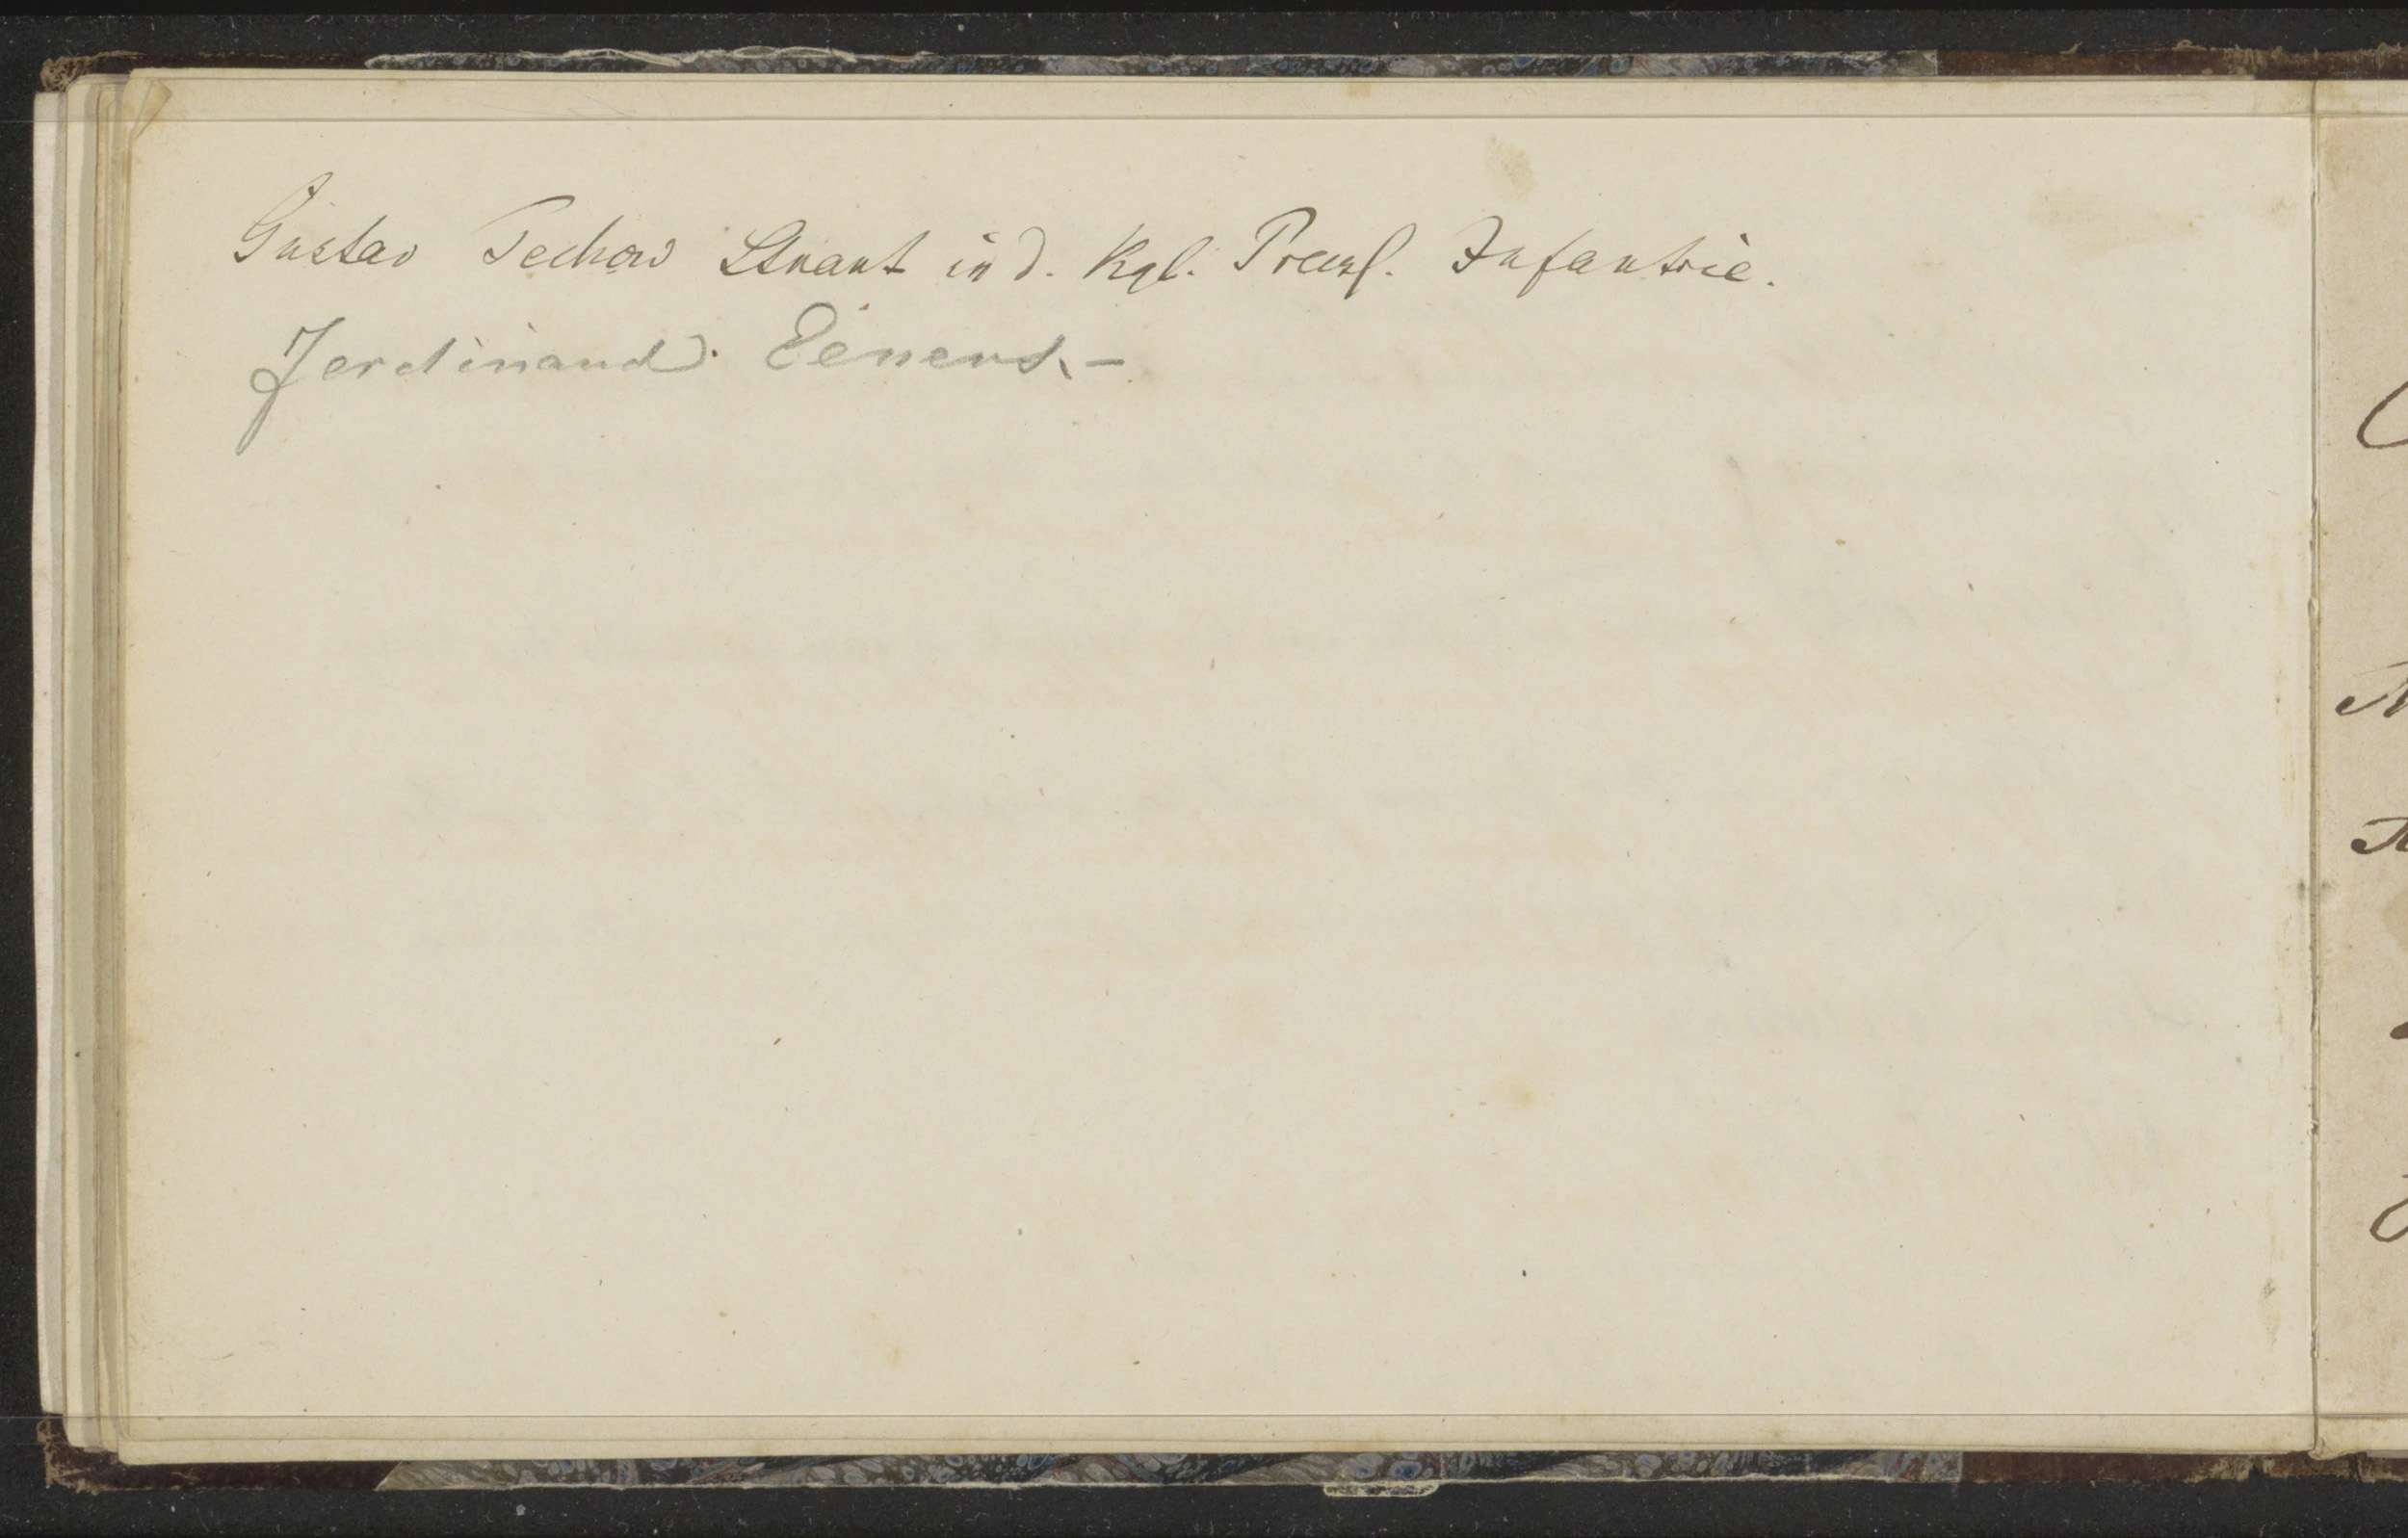 Gustav Techow Ltnant in d. Kgl. Preusſ. Infantrie.
Ferdinand. Eenens. –